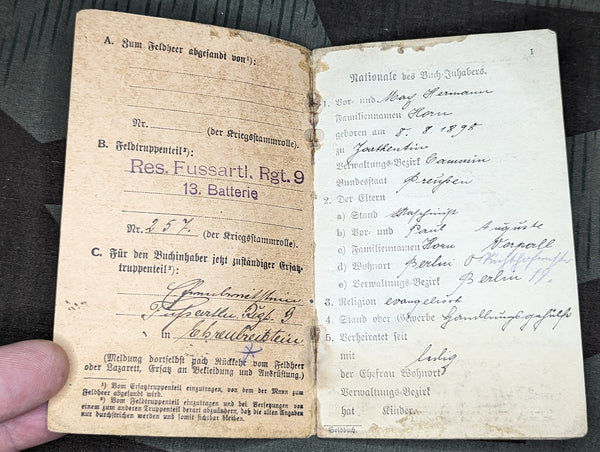 A. Zum Feldheer abgesandt von¹):
Nr. (der Kriegsstammrolle).
B. Feldtruppenteil²):
Res. Fussartl. Rgt. 9
13. Batterie
Nr. 257. (der Kriegsstammrolle).
C. Für den Buchinhaber jetzt zuständiger Ersatz-
truppenteil²):
Fußartl. Regt. 9
in Ehrenbreitstein
(Meldung dortselbst nach Rückkehr vom Feldheer
oder Lazarett, Ersatz an Bekleidung und Ausrüstung.)
¹) Vom Ersatztruppenteil einzutragen, von dem der Mann zum
Feldheer abgesandt wird.
²) Vom Feldtruppenteil einzutragen und bei Versetzungen von
einem zum anderen Truppenteil derart abzuändern, daß die alten Angaben
nur durchstrichen werden und somit sichtbar bleiben.
1
Nationale des Buch-Inhabers.
1. Vor- und Max Hermann
Familiennamen Horn
geboren am 8. 8. 1898
zu
Verwaltungs-Bezirk Cammin
Bundesstaat Preußen
2. Der Eltern
a) Stand Maschinist
b) Vor- und Paul Auguste
c) Familiennamen Horn
d) Wohnort Berlin O
e) Verwaltungs-Bezirk Berlin
3. Religion evangelisch
4. Stand oder Gewerbe Handlungsgehülfe
5. Verheiratet seit
mit ledig
der Ehefrau Wohnort
Verwaltungs-Bezirk
hat Kinder.
Soldbuch.